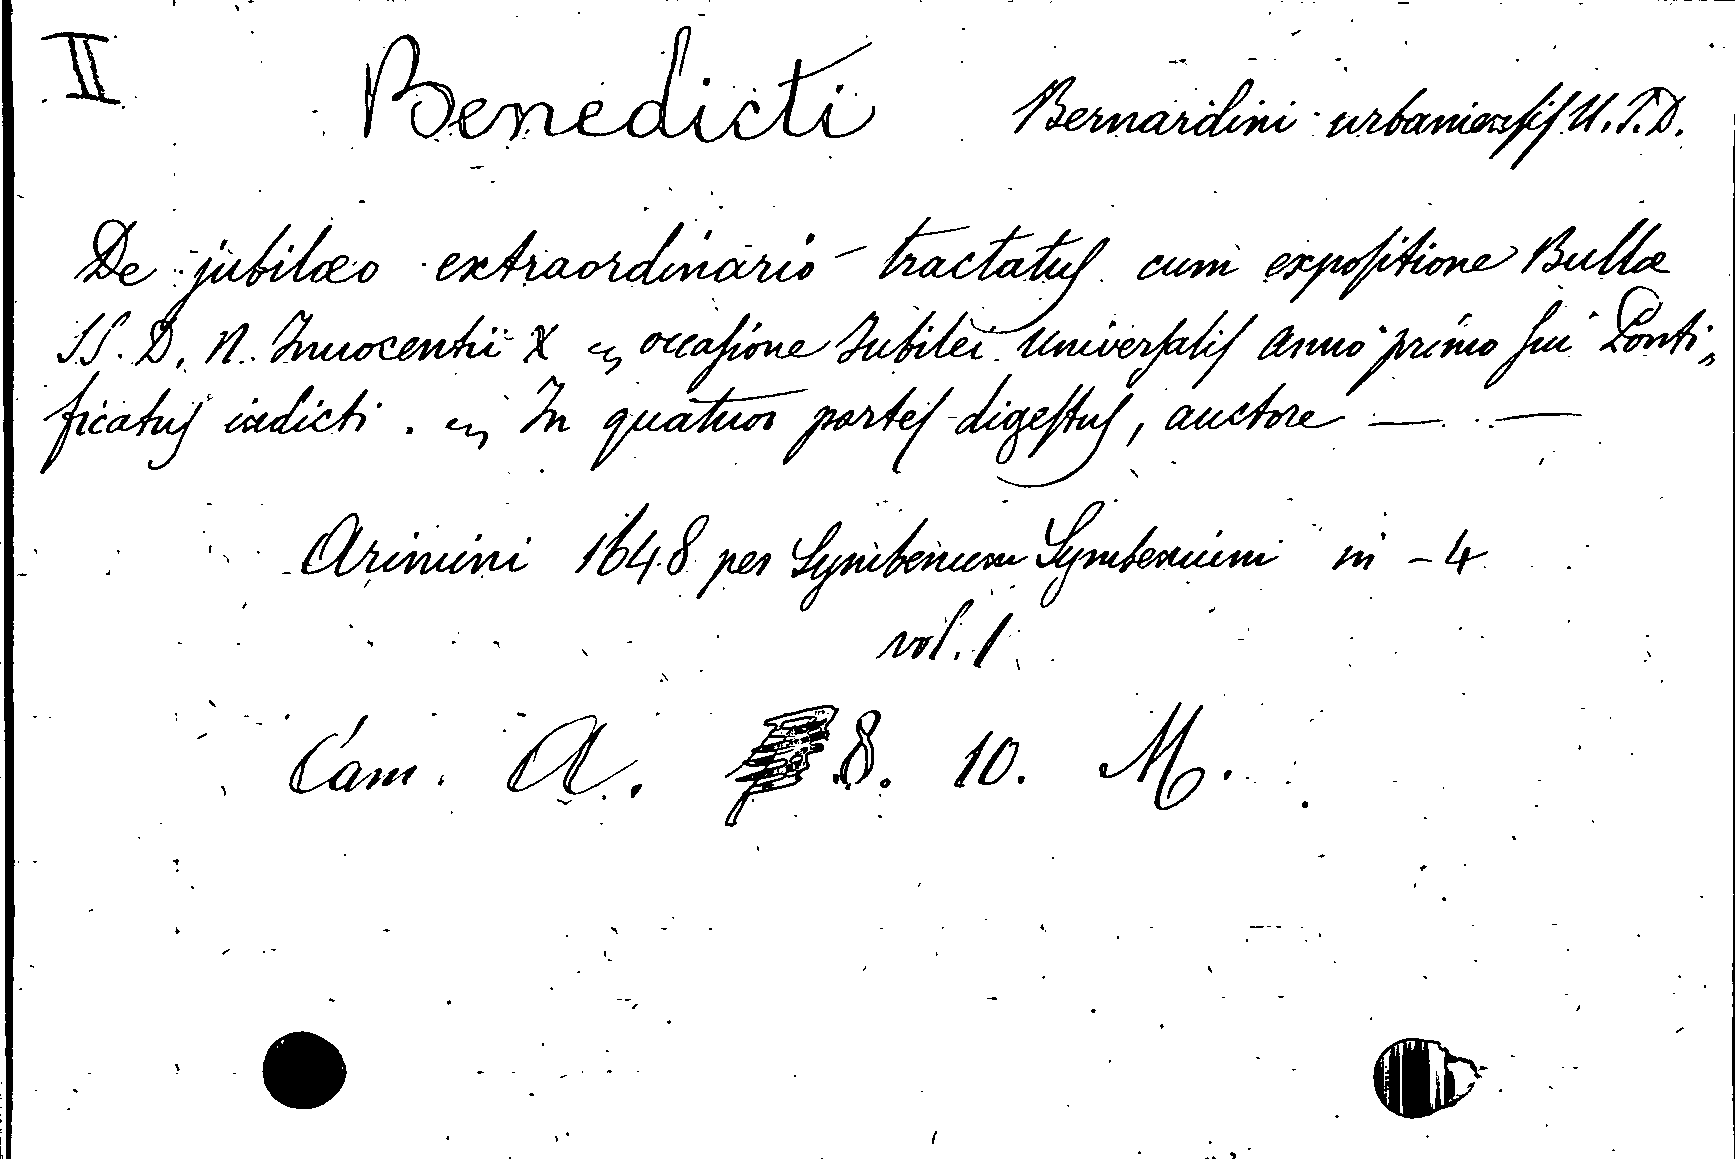 II Benedicti Bernardini urbaniensis U.T.D.
De jubilæo extraordinario tractatus cum expositione Bullæ
SS. D. N. Innocentii X occasione Jubilei Universalis anno primo sui Ponti-
ficatus indicti. In quatuor partes digestus, auctore — —
Arimini 1648 per Symbenium Symbenium in -4
vol. 1
Cam. A. 8. 10. M.